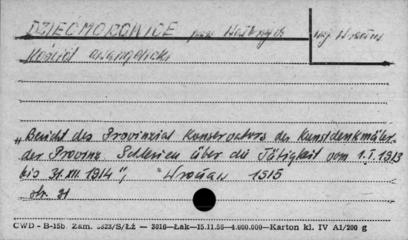 DZIEĆMOROWICE pow. Wałbrzych woj. Wrocław
Kościół ewangelicki
„Bericht des Provinzial Konservators der Kunstdenkmäler
der Provinz Schlesien über die Tätigkeit vom 1.I.1913
bis 31.XII 1914", Wrocław 1915
str. 31
CWD - B-15b. Zam. 8823/S/Łż — 3016—Łak—15.11.56—4.000.000—Karton kl. IV A1/200 g